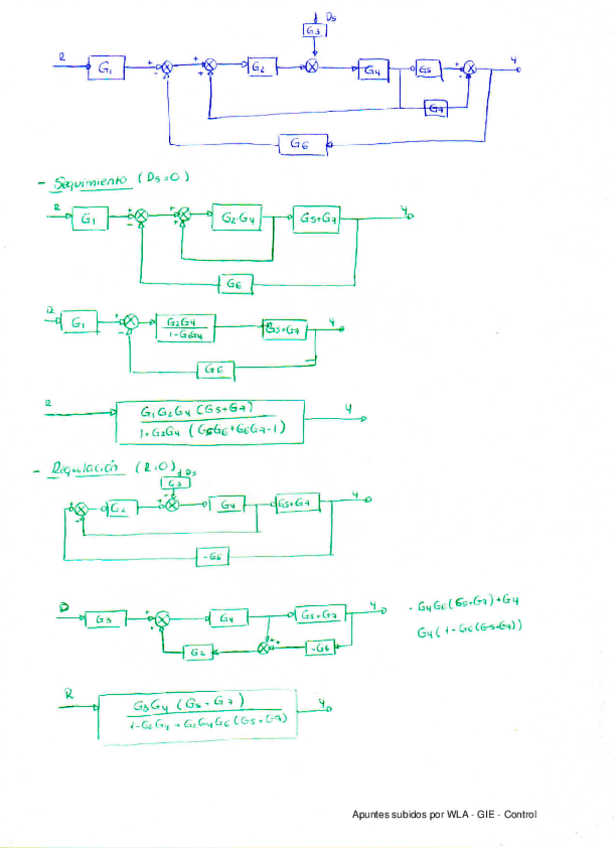 Ds
G3
R G1 G2 G4 G5 Y
G7
G6
- Seguimiento (Ds=0)
R G1 G2·G4 G5+G7 Y
G6
R G1 G2G4 / 1-G2G4 G5+G7 Y
G6
R G1G2G4 (G5+G7) / 1+G2G4 (G5G6+G6G7-1) Y
- Regulación (R=0)
Ds
G3
G2 G4 G5+G7 Y
-G6
D G3 G4 G5+G7 Y - G4G6(G5+G7)+G4
G2 -G6 G4(1-G6(G5+G7))
R G3G4 (G5+G7) / 1-G2G4+G2G4G6(G5+G7) Y
Apuntes subidos por WLA - GIE - Control